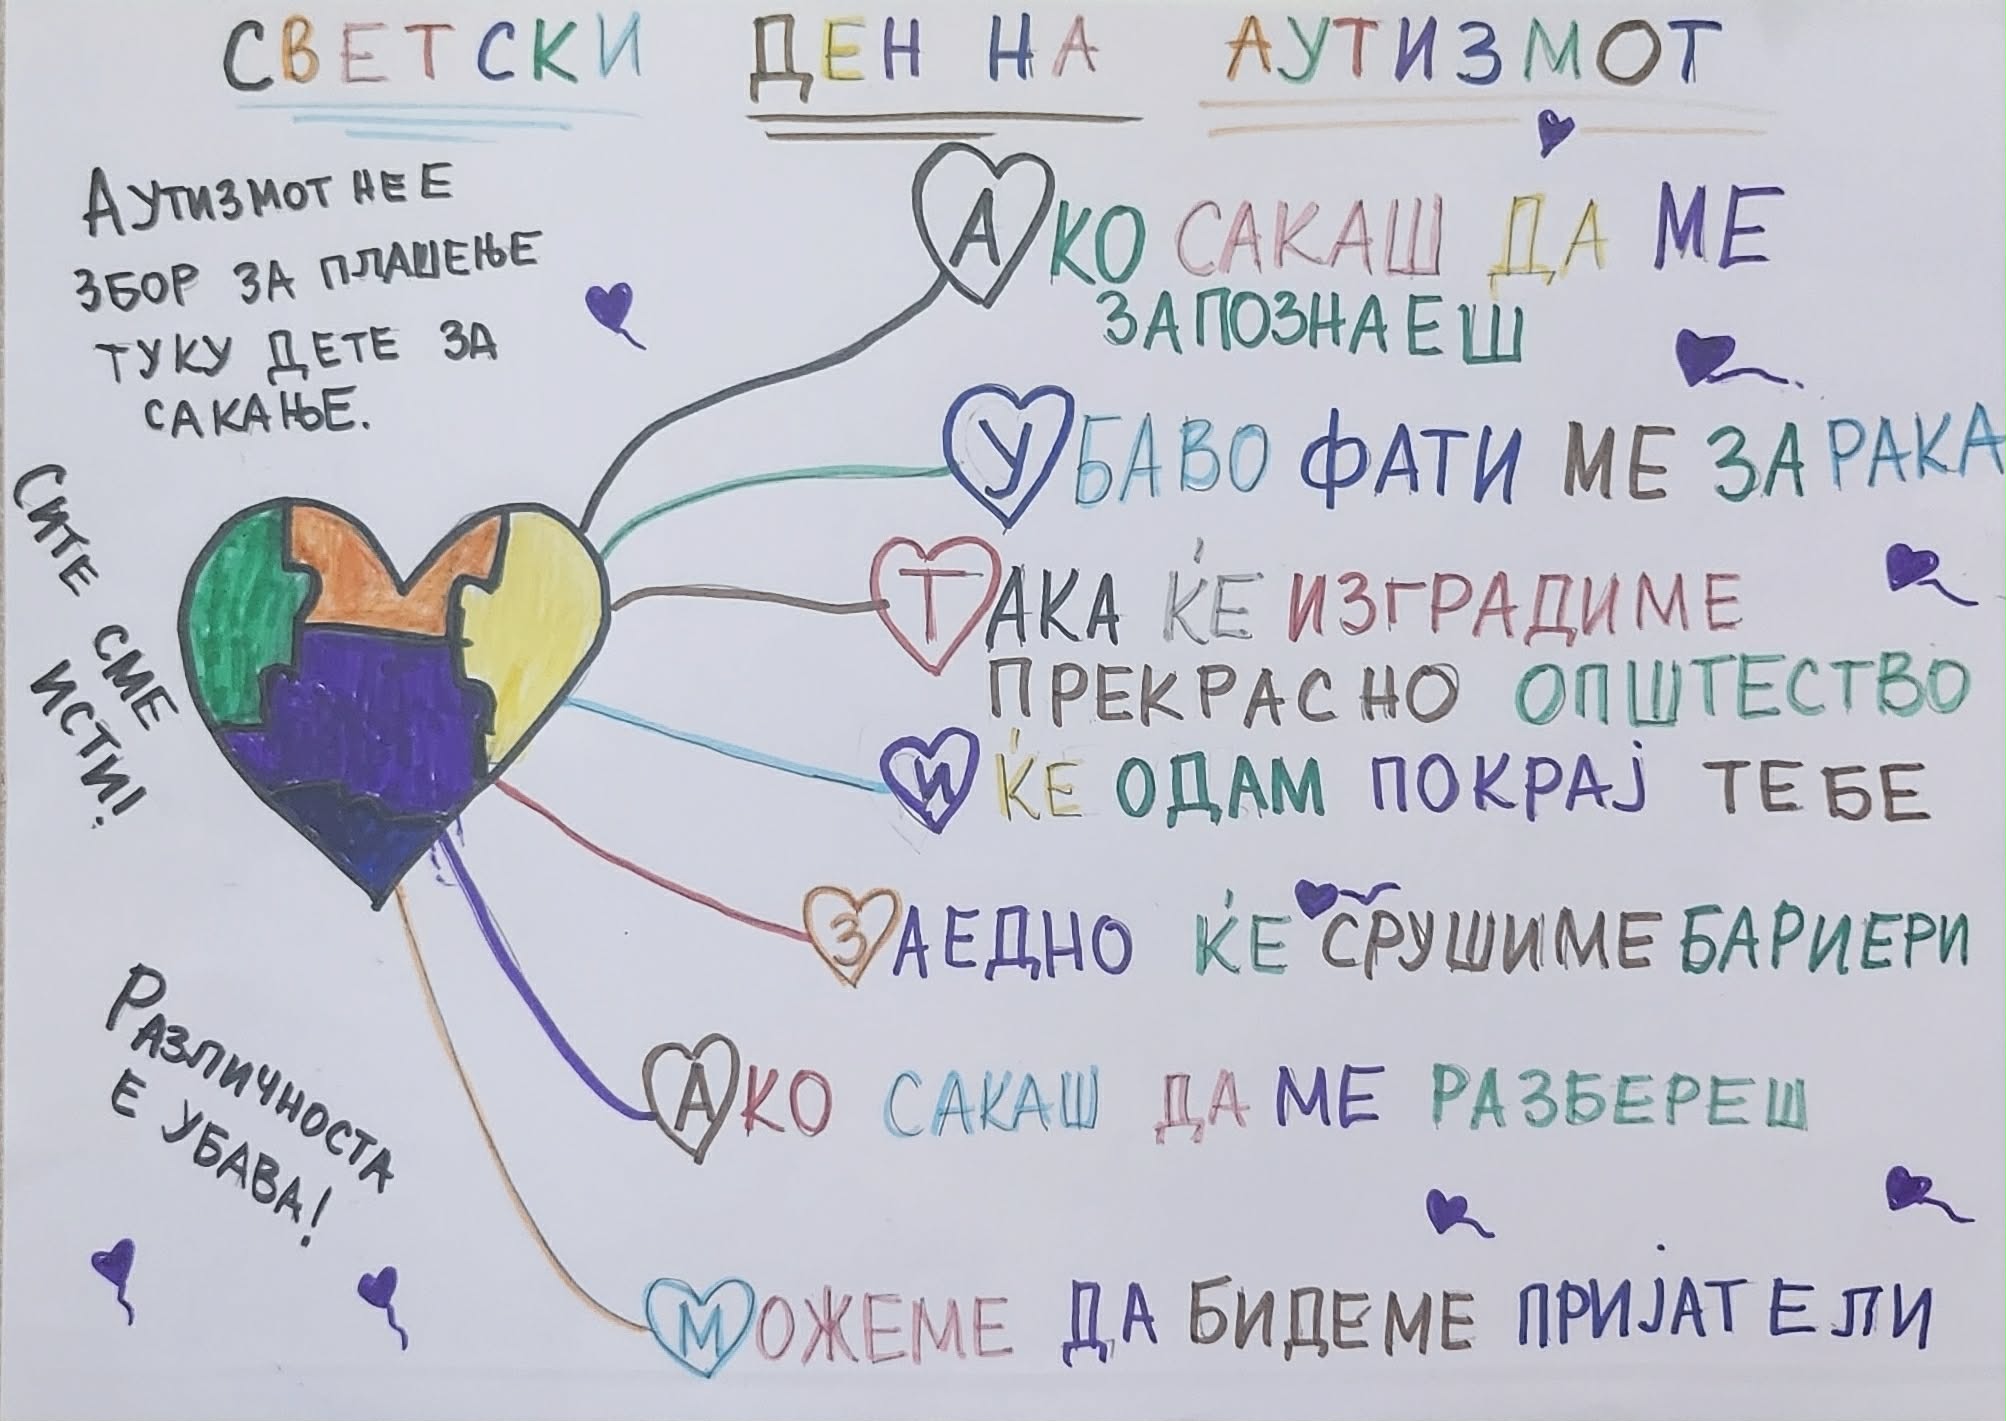 СВЕТСКИ ДЕН НА АУТИЗМОТ
АУТИЗМОТ НЕ Е
ЗБОР ЗА ПЛАШЕЊЕ
ТУКУ ДЕТЕ ЗА
САКАЊЕ.
СИТЕ СМЕ
ИСТИ!
РАЗЛИЧНОСТА
Е УБАВА!
АКО САКАШ ДА МЕ
ЗАПОЗНАЕШ
УБАВО ФАТИ МЕ ЗА РАКА
ТАКА ЌЕ ИЗГРАДИМЕ
ПРЕКРАСНО ОПШТЕСТВО
И ЌЕ ОДАМ ПОКРАЈ ТЕБЕ
ЗАЕДНО ЌЕ СРУШИМЕ БАРИЕРИ
АКО САКАШ ДА МЕ РАЗБЕРЕШ
МОЖЕМЕ ДА БИДЕМЕ ПРИЈАТЕЛИ